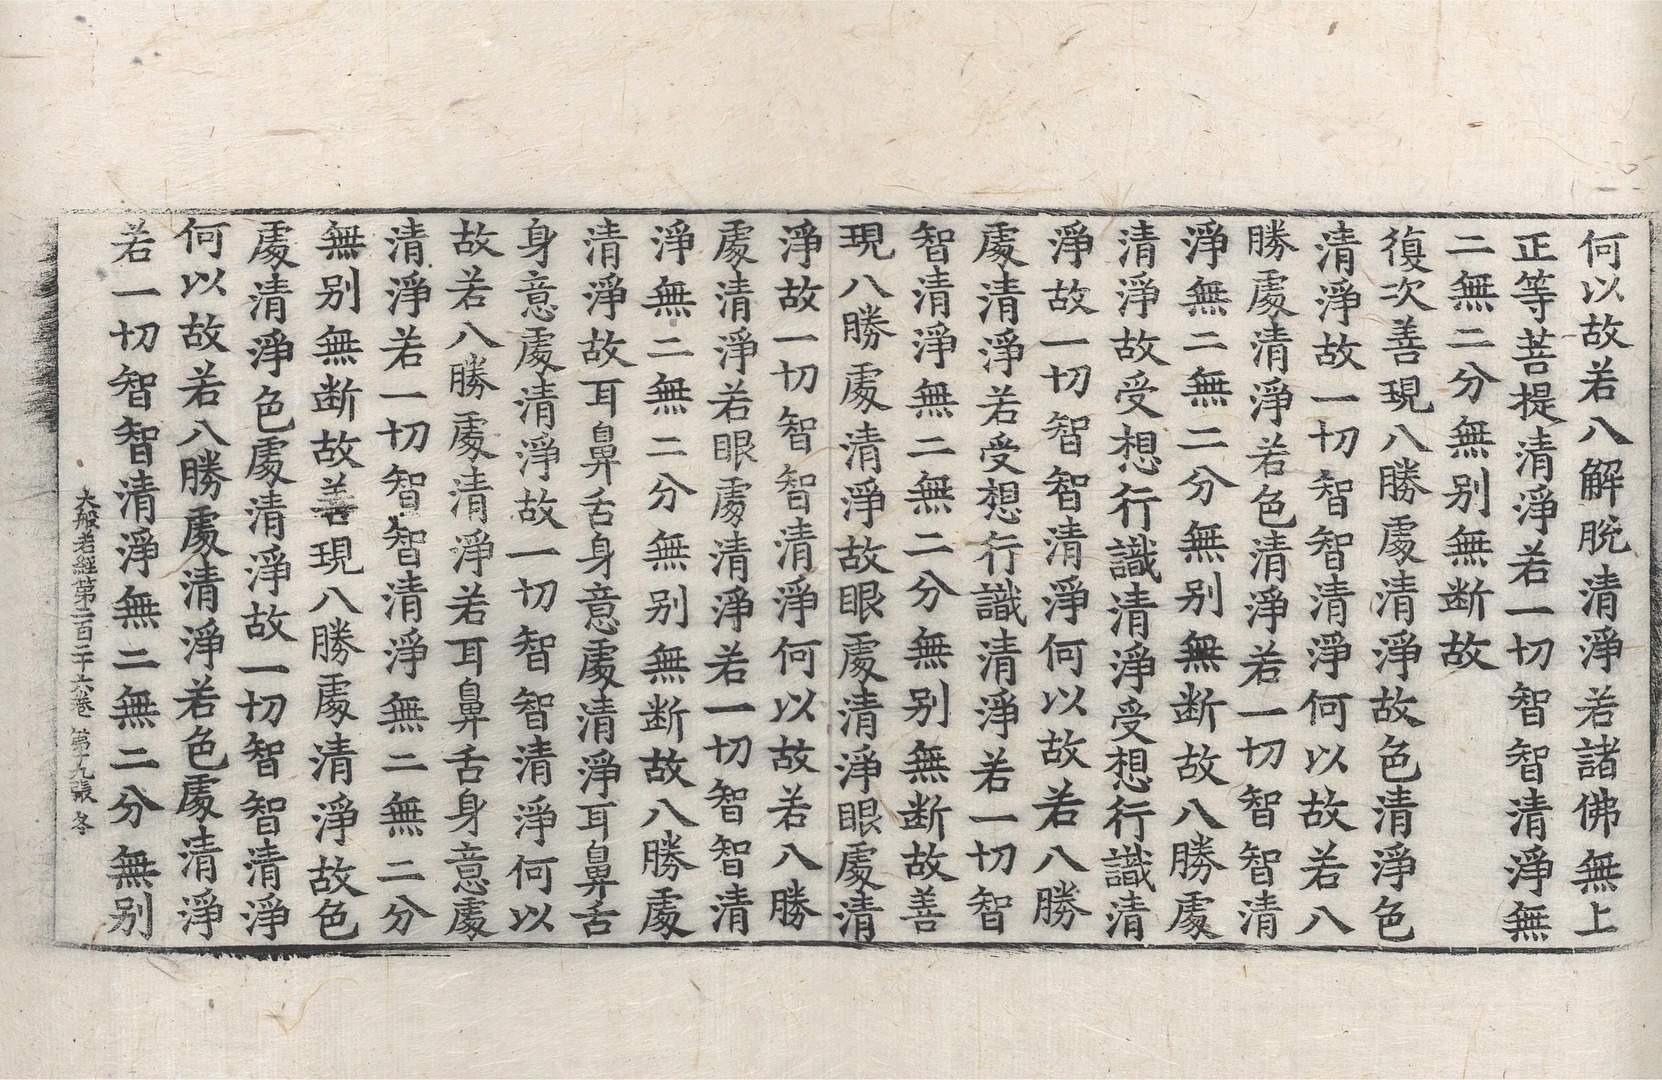 何以故若八解脫清淨若諸佛無上
正等菩提清淨若一切智智清淨無
二無二分無别無断故
復次善現八勝處清淨故色清淨色
清淨故一切智智清淨何以故若八
勝處清淨若色清淨若一切智智清
淨無二無二分無别無断故八勝處
清淨故受想行識清淨受想行識清
淨故一切智智清淨何以故若八勝
處清淨若受想行識清淨若一切智
智清淨無二無二分無别無断故善
現八勝處清淨故眼處清淨眼處清
淨故一切智智清淨何以故若八勝
處清淨若眼處清淨若一切智智清
淨無二無二分無别無断故八勝處
清淨故耳鼻舌身意處清淨耳鼻舌
身意處清淨故一切智智清淨何以
故若八勝處清淨若耳鼻舌身意處
清淨若一切智智清淨無二無二分
無别無断故善現八勝處清淨故色
處清淨色處清淨故一切智智清淨
何以故若八勝處清淨若色處清淨
若一切智智清淨無二無二分無别
大般若經第二百二十六卷 第十九張 冬